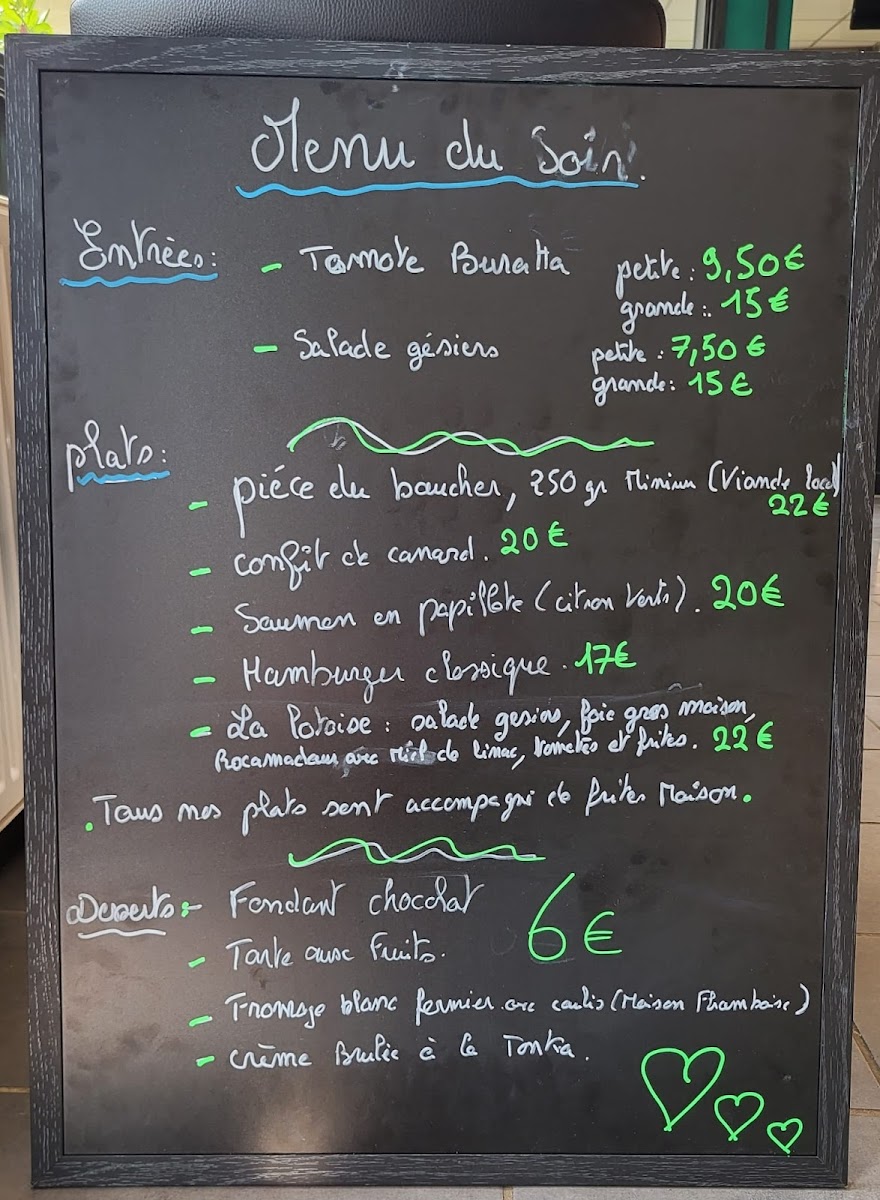 Menu du Soir.
Entrées: - Tomate Buratta petite: 9,50€
grande: 15€
- Salade gésiers petite: 7,50€
grande: 15€
plats:
- piéce du boucher, 250 gr Minimum (Viande local)
22€
- confit de canard. 20€
- Saumon en papillote (citron verts). 20€
- Hamburger classique. 17€
- La : salade gesiers, foie gras maison,
Rocamadour avec Miel de Limac, tomates et frites. 22€
. Tous nos plats sont accompagné de frites Maison.
Desserts:- Fondant chocolat 6€
- Tarte aux Fruits.
- Fromage blanc fermier avec coulis (Maison Framboise)
- crème Brulée à la Tonka.